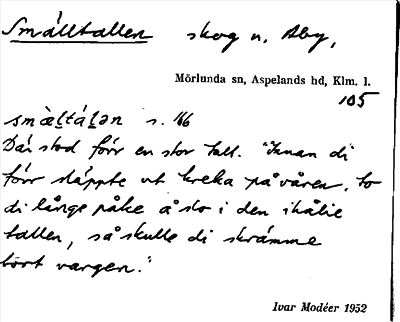 Smälltallen skog n. Åby,
Mörlunda sn, Aspelands hd, Klm. l.
105
smæ̀l̥tál̥ən s. 166
Där stod förr en stor tall. "Innan di
förr släppte ut kreka på våren, to
di långe påke å slo i den ihålie
tallen, så skulle di skrämme
bort vargen."
Ivar Modéer 1952